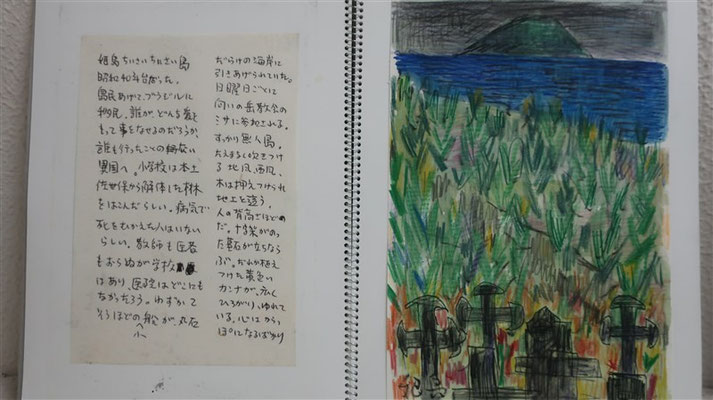 島 ちいさいちいさい島
昭和40年台だった。
島民あげて、ブラジルに
移民。誰が、どんな夢を
もって事をなせるのだろうか、
誰も行ったことの無い
異国へ。小学校は本土
佐世保から解体した林
をはこんだらしい。病気で
死をむかえた人はいない
らしい。教師も医者
もおらぬが学校
はあり、医院はどこにも
なかったろう。わずか
そうほどの船が、丸石
小
だらけの海岸に
引きあげられていた。
日曜日ごとに
向いの島教会の
ミサに参加される。
すっかり無人島。
たえまなく吹きつけ
る北風、西風、
木は押えつけられ
地上を這う、
人の背高さほどのも
のだ。十字架がのっ
た墓石がたちなら
ぶ。だれか植え
つけた黄色い
カンナが、広く
ひろがり、ゆれて
いる。心はからっ
ぽになるばかり